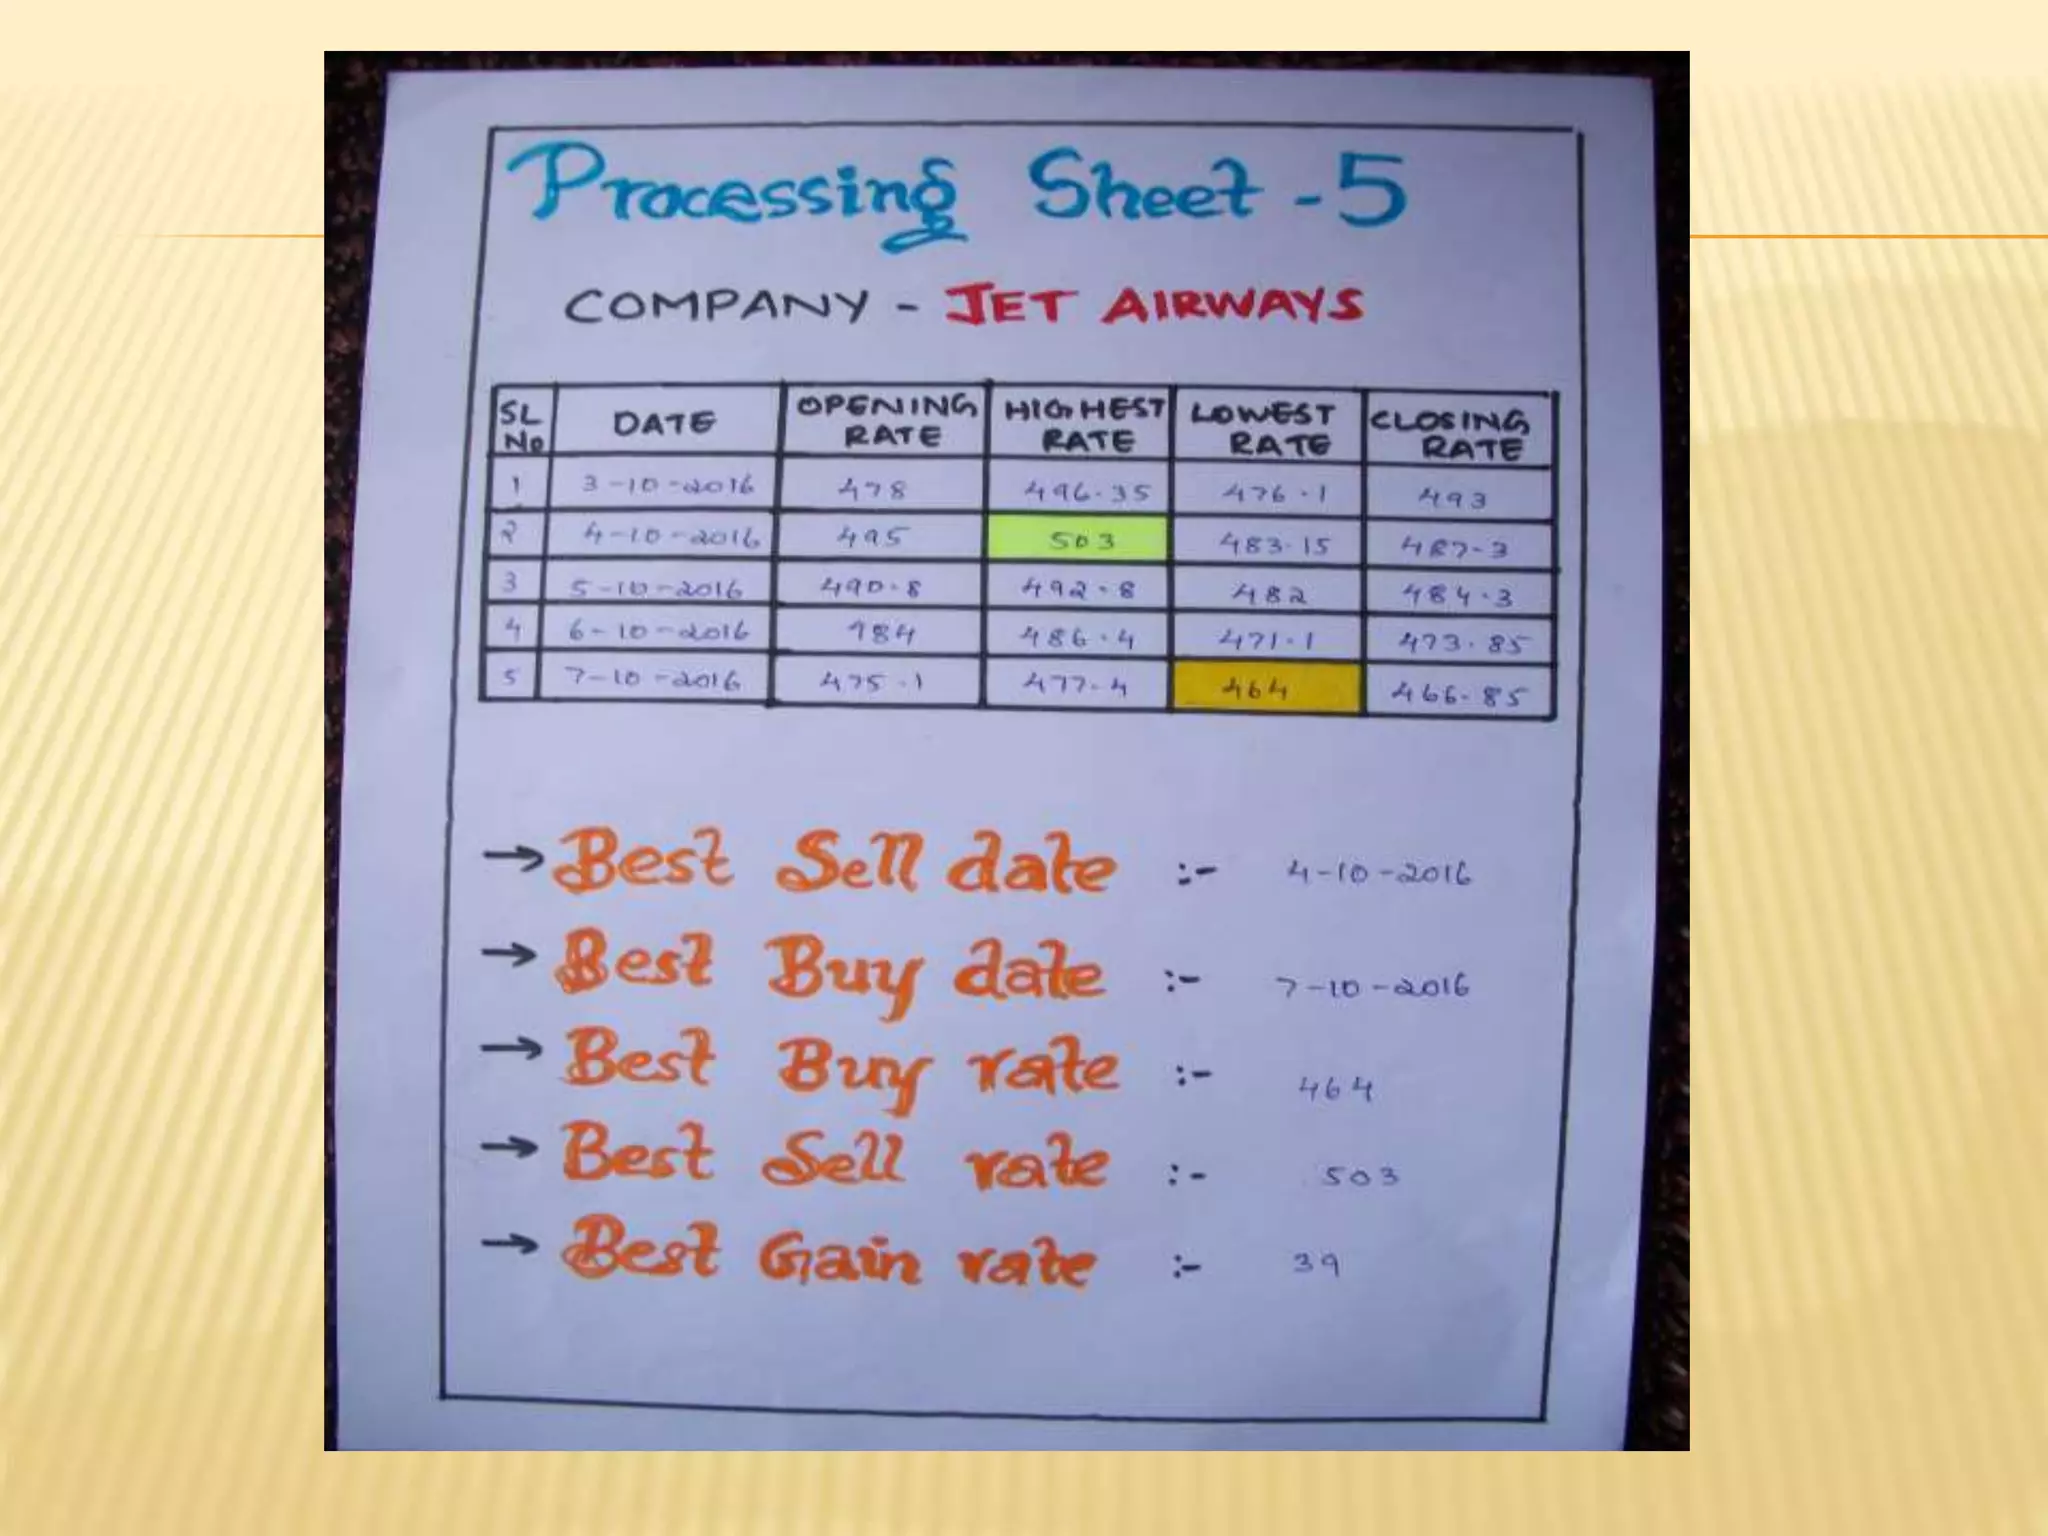 Processing Sheet - 5
COMPANY - JET AIRWAYS
SL No DATE OPENING RATE HIGHEST RATE LOWEST RATE CLOSING RATE
1 3-10-2016 478 496.35 476.1 493
2 4-10-2016 495 503 483.15 487.3
3 5-10-2016 490.8 492.8 482 484.3
4 6-10-2016 484 486.4 471.1 473.85
5 7-10-2016 475.1 477.4 464 466.85
→ Best Sell date :- 4-10-2016
→ Best Buy date :- 7-10-2016
→ Best Buy rate :- 464
→ Best Sell rate :- 503
→ Best Gain rate :- 39